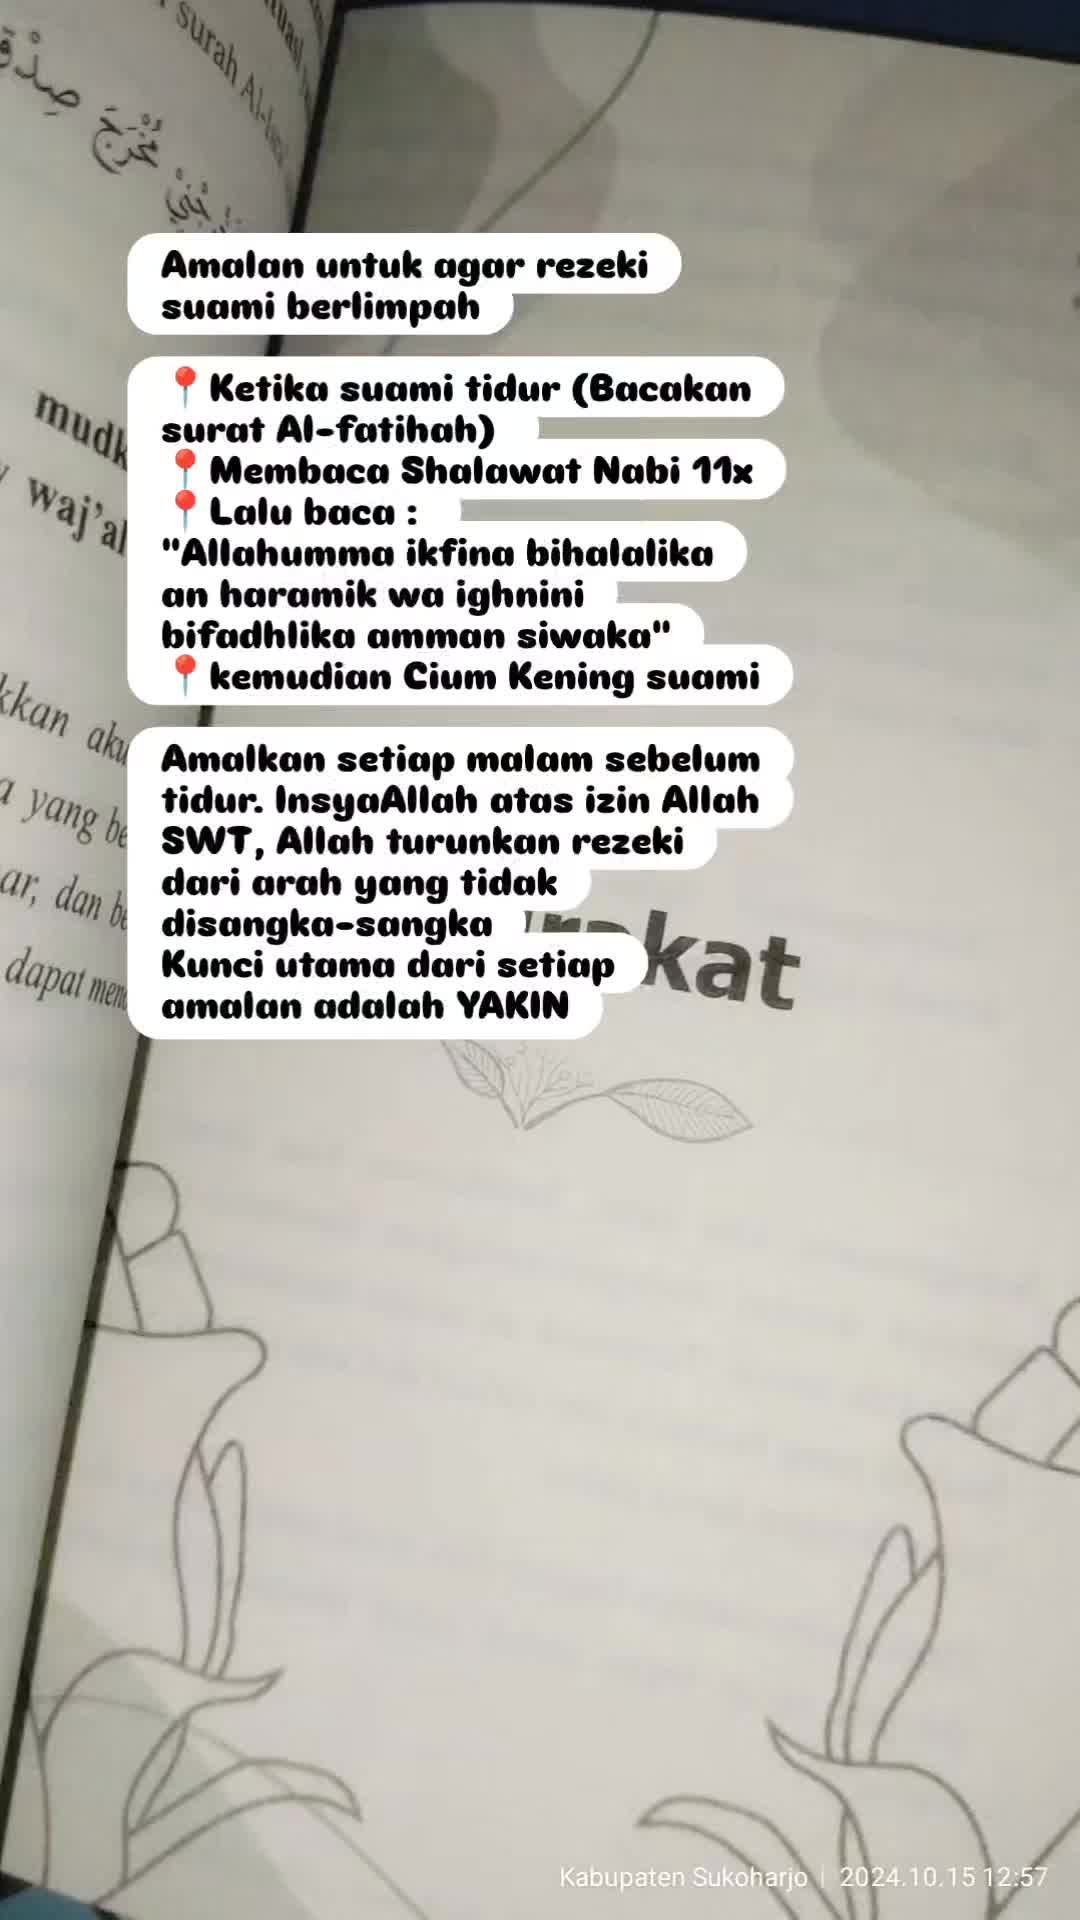 surah Al-
صِدْقٍ
مُخْرَجَ
Amalan untuk agar rezeki
suami berlimpah
📍Ketika suami tidur (Bacakan
surat Al-fatihah)
📍Membaca Shalawat Nabi 11x
📍Lalu baca :
"Allahumma ikfina bihalalika
an haramik wa ighnini
bifadhlika amman siwaka"
📍kemudian Cium Kening suami
Amalkan setiap malam sebelum
tidur. InsyaAllah atas izin Allah
SWT, Allah turunkan rezeki
dari arah yang tidak
disangka-sangka
Kunci utama dari setiap
amalan adalah YAKIN
mudk
waj'al
kkan aku
a yang be
ar, dan be
dapat men
rakat
Kabupaten Sukoharjo | 2024.10.15 12:57